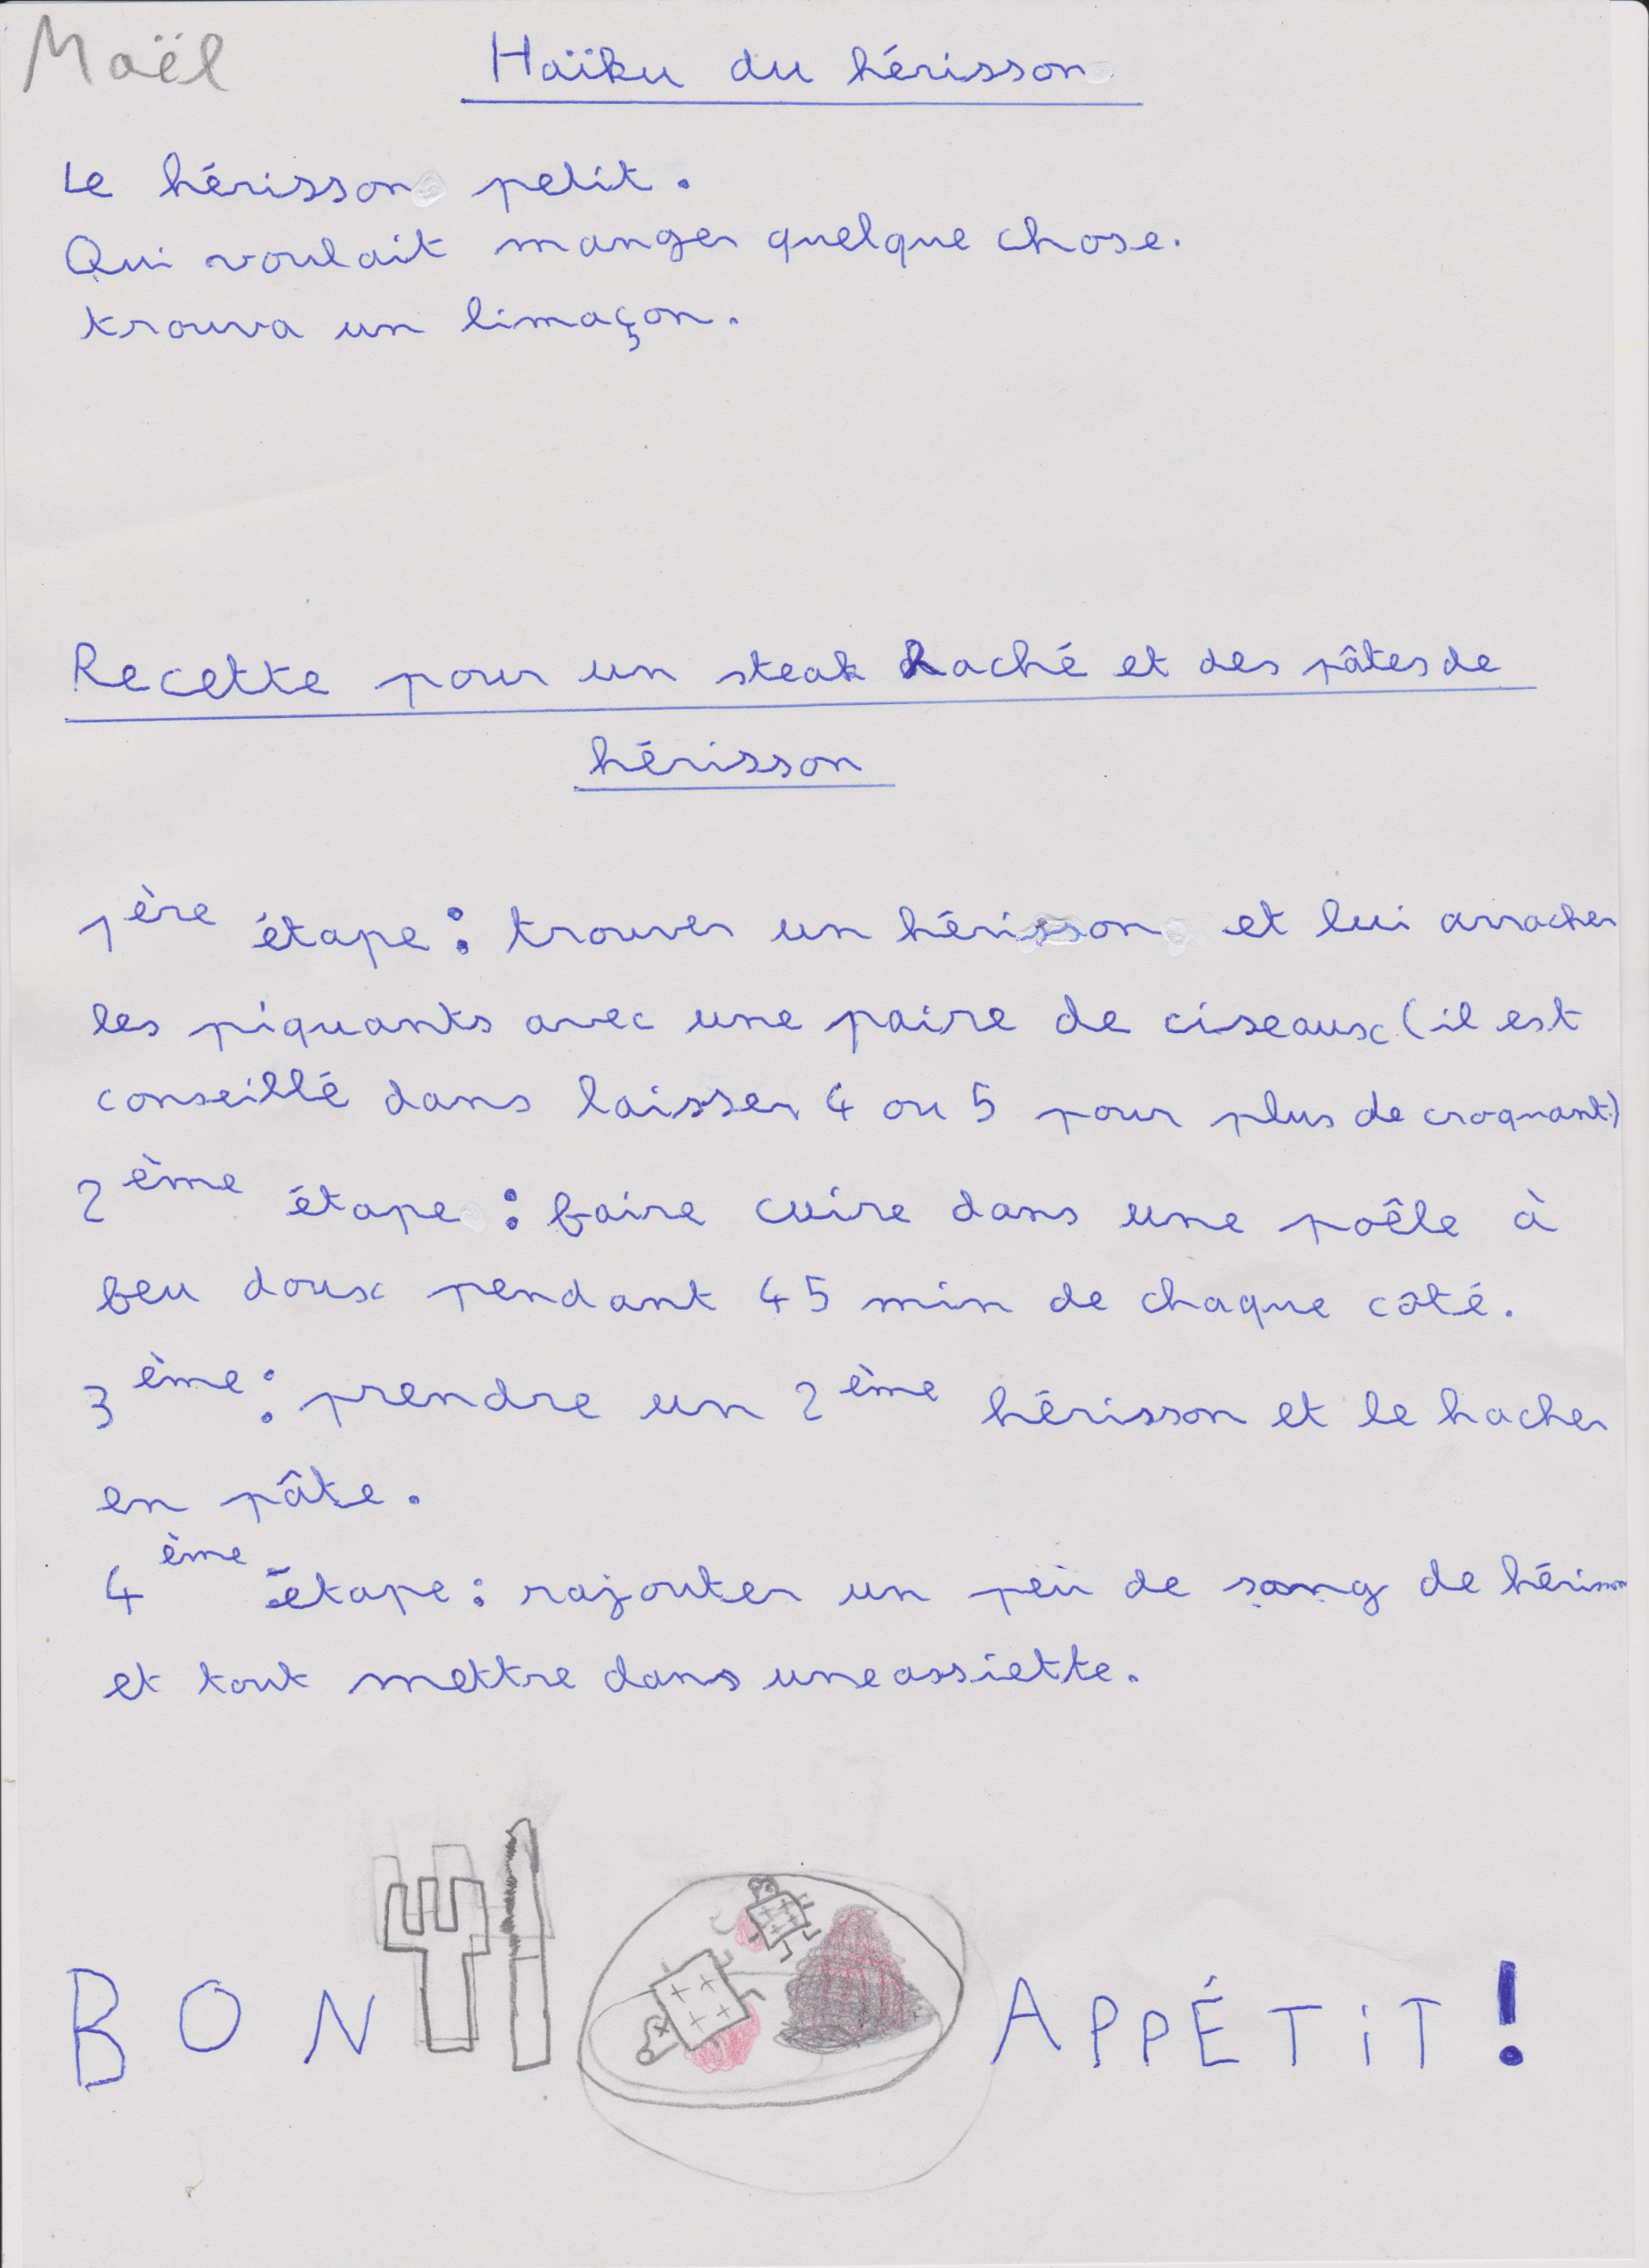 Maël
Haïku du hérisson
Le hérisson petit.
Qui voulait manger quelque chose.
trouva un limaçon.
Recette pour un steak haché et des pâtes de
hérisson
1ère étape : trouver un hérisson et lui arracher
les piquants avec une paire de ciseaux (il est
conseillé dans laisser 4 ou 5 pour plus de croquant)
2ème étape : faire cuire dans une poêle à
feu doux pendant 45 min de chaque côté.
3ème : prendre un 2ème hérisson et le hacher
en pâte.
4ème étape : rajouter un peu de sang de hérisson
et tout mettre dans une assiette.
BON APPÉTiT !